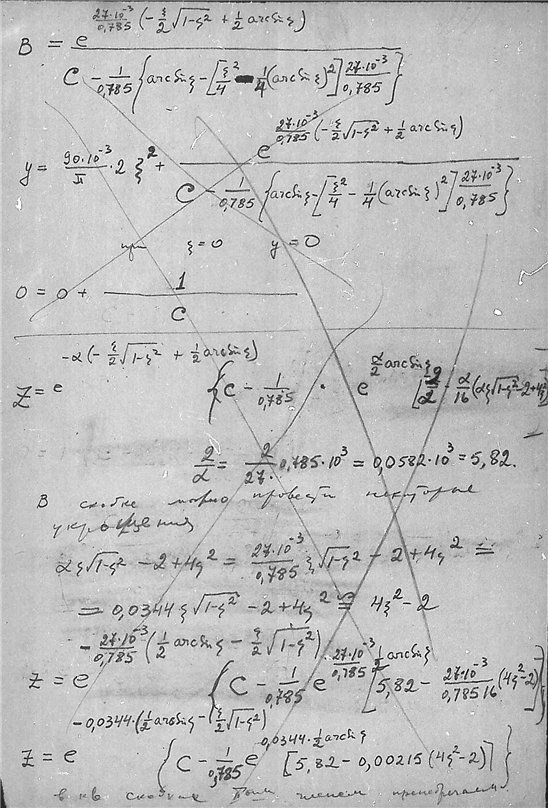 B = e^{\frac{27·10^{-3}}{0,785}(-\frac{ξ}{2}\sqrt{1-ξ^2} + \frac{1}{2}arcsinξ)} / C - \frac{1}{0,785}{arcsinξ - [\frac{ξ^2}{4} - \frac{1}{4}(arcsinξ)^2]\frac{27·10^{-3}}{0,785}}
y = \frac{90·10^{-3}}{π}·2ξ^2 + e^{\frac{27·10^{-3}}{0,785}(-\frac{ξ}{2}\sqrt{1-ξ^2} + \frac{1}{2}arcsinξ)} / C - \frac{1}{0,785}{arcsinξ - [\frac{ξ^2}{4} - \frac{1}{4}(arcsinξ)^2]\frac{27·10^{-3}}{0,785}}
при ξ=0 y=0
0 = 0 + \frac{1}{C}
Z = e^{-α(-\frac{ξ}{2}\sqrt{1-ξ^2} + \frac{1}{2}arcsinξ)} {C - \frac{1}{0,785} · e^{\frac{α}{2}arcsinξ}
\frac{2}{α} = \frac{2}{27·}0,785·10^3 = 0,0582·10^3 = 5,82.
В скобке можно провести некоторые
укрощения
αξ\sqrt{1-ξ^2} - 2 + 4ξ^2 = \frac{27·10^{-3}}{0,785}ξ\sqrt{1-ξ^2} - 2 + 4ξ^2 =
= 0,0344ξ\sqrt{1-ξ^2} - 2 + 4ξ^2 ≅ 4ξ^2 - 2
Z = e^{-\frac{27·10^{-3}}{0,785}(\frac{1}{2}arcsinξ - \frac{ξ}{2}\sqrt{1-ξ^2})} {C - \frac{1}{0,785}e^{\frac{27·10^{-3}}{0,785}\frac{1}{2}arcsinξ}[5,82 - \frac{27·10^{-3}}{0,785 16}(4ξ^2-2)]}
Z = e^{-0,0344·(\frac{1}{2}arcsinξ - \frac{ξ}{2}\sqrt{1-ξ^2})} {C - \frac{1}{0,785}e^{0,0344·\frac{1}{2}arcsinξ}[5,82 - 0,00215(4ξ^2-2)]}
в кв скобках членом пренебрегаем.